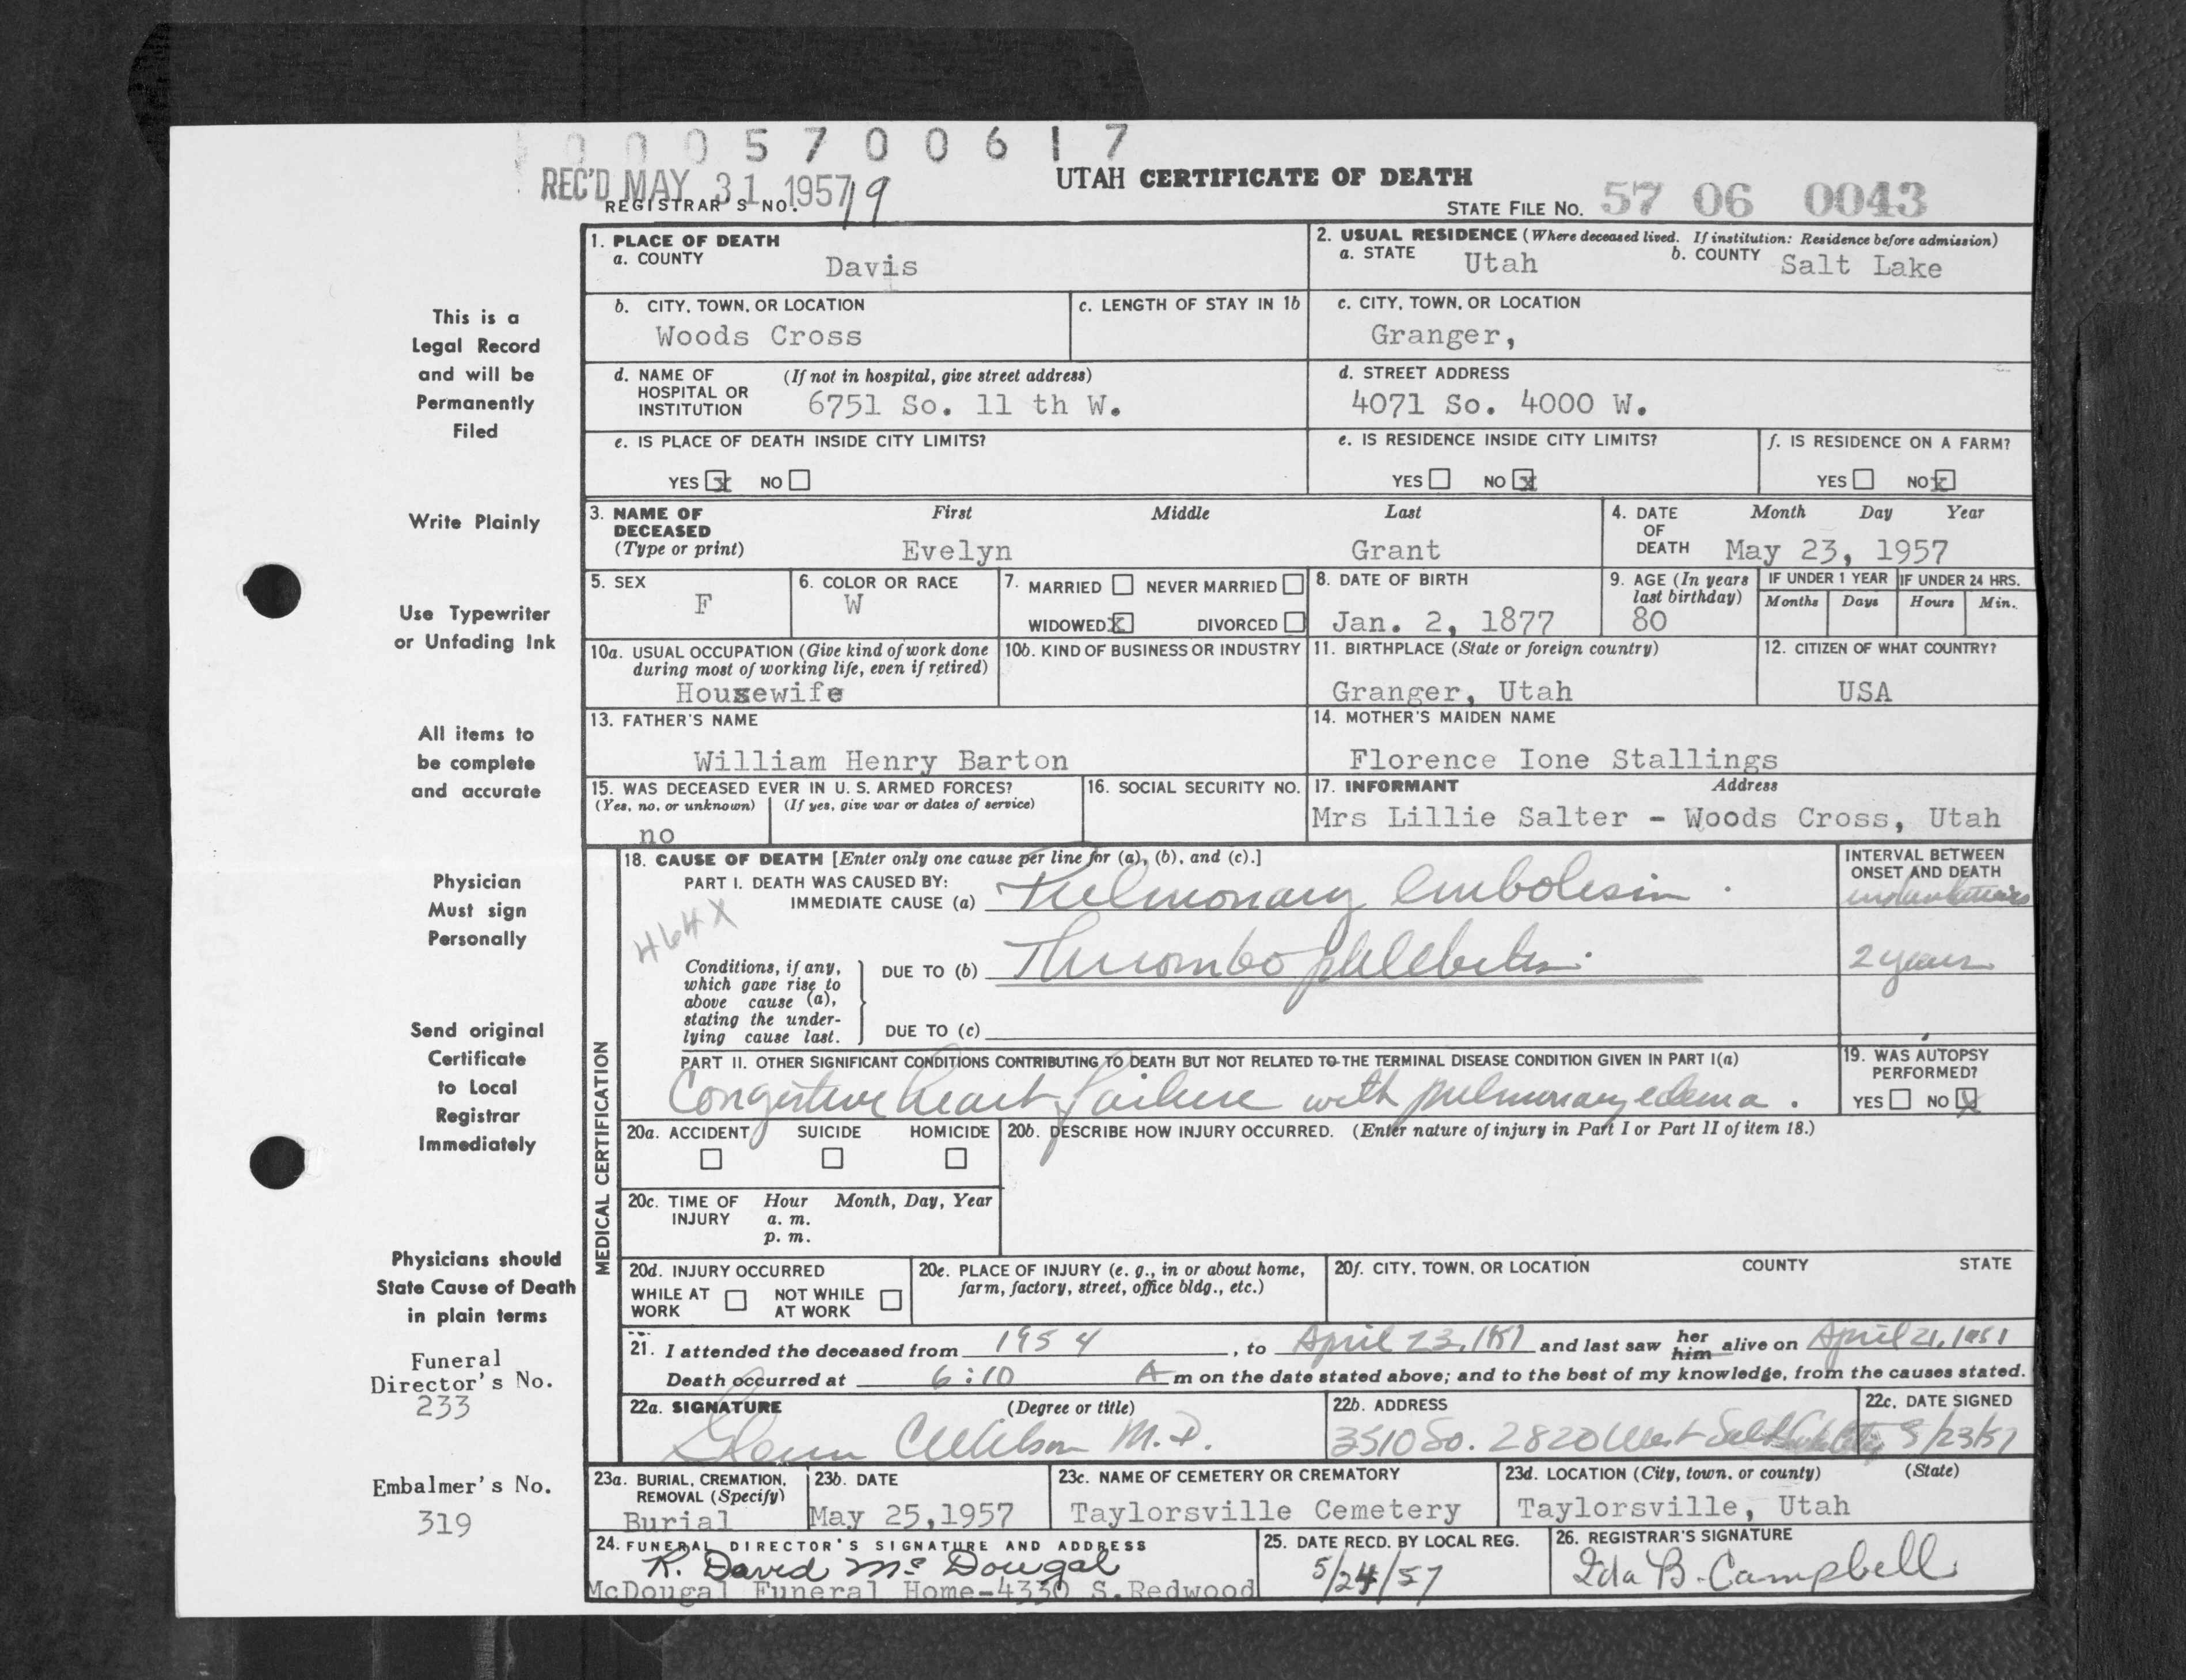 0005700617
REC'D MAY 31 1957
REGISTRAR'S NO. 19
UTAH CERTIFICATE OF DEATH
STATE FILE NO. 57 06 0043
This is a
Legal Record
and will be
Permanently
Filed
Write Plainly
Use Typewriter
or Unfading Ink
All items to
be complete
and accurate
Physician
Must sign
Personally
Send original
Certificate
to Local
Registrar
Immediately
Physicians should
State Cause of Death
in plain terms
Funeral
Director's No.
233
Embalmer's No.
319
1. PLACE OF DEATH
a. COUNTY Davis
2. USUAL RESIDENCE (Where deceased lived. If institution: Residence before admission)
a. STATE Utah b. COUNTY Salt Lake
b. CITY, TOWN, OR LOCATION
Woods Cross
c. LENGTH OF STAY IN 1b
c. CITY, TOWN, OR LOCATION
Granger,
d. NAME OF (If not in hospital, give street address)
HOSPITAL OR
INSTITUTION 6751 So. 11 th W.
d. STREET ADDRESS
4071 So. 4000 W.
e. IS PLACE OF DEATH INSIDE CITY LIMITS?
YES x NO
e. IS RESIDENCE INSIDE CITY LIMITS?
YES NO x
f. IS RESIDENCE ON A FARM?
YES NO x
3. NAME OF DECEASED (Type or print)
First Middle Last
Evelyn Grant
4. DATE OF DEATH
Month Day Year
May 23, 1957
5. SEX
F
6. COLOR OR RACE
W
7. MARRIED NEVER MARRIED
WIDOWED x DIVORCED
8. DATE OF BIRTH
Jan. 2, 1877
9. AGE (In years
last birthday)
80
IF UNDER 1 YEAR
Months Days
IF UNDER 24 HRS.
Hours Min.
10a. USUAL OCCUPATION (Give kind of work done
during most of working life, even if retired)
Housewife
10b. KIND OF BUSINESS OR INDUSTRY
11. BIRTHPLACE (State or foreign country)
Granger, Utah
12. CITIZEN OF WHAT COUNTRY?
USA
13. FATHER'S NAME
William Henry Barton
14. MOTHER'S MAIDEN NAME
Florence Ione Stallings
15. WAS DECEASED EVER IN U. S. ARMED FORCES?
(Yes, no, or unknown) (If yes, give war or dates of service)
no
16. SOCIAL SECURITY NO.
17. INFORMANT Address
Mrs Lillie Salter - Woods Cross, Utah
MEDICAL CERTIFICATION
18. CAUSE OF DEATH [Enter only one cause per line for (a), (b), and (c).]
INTERVAL BETWEEN
ONSET AND DEATH
PART I. DEATH WAS CAUSED BY:
IMMEDIATE CAUSE (a) Pulmonary embolism.
464X
Conditions, if any,
which gave rise to
above cause (a),
stating the under-
lying cause last.
DUE TO (b) Thrombophlebitis. 2 years
DUE TO (c)
PART II. OTHER SIGNIFICANT CONDITIONS CONTRIBUTING TO DEATH BUT NOT RELATED TO THE TERMINAL DISEASE CONDITION GIVEN IN PART I(a)
Congestive heart failure with pulmonary edema.
19. WAS AUTOPSY
PERFORMED?
YES NO x
20a. ACCIDENT SUICIDE HOMICIDE
20b. DESCRIBE HOW INJURY OCCURRED. (Enter nature of injury in Part I or Part II of item 18.)
20c. TIME OF INJURY
Hour Month, Day, Year
a. m.
p. m.
20d. INJURY OCCURRED
WHILE AT WORK NOT WHILE AT WORK
20e. PLACE OF INJURY (e. g., in or about home,
farm, factory, street, office bldg., etc.)
20f. CITY, TOWN, OR LOCATION COUNTY STATE
21. I attended the deceased from 1954, to April 23, 1957 and last saw her him alive on April 21, 1957
Death occurred at 6:10 A m on the date stated above; and to the best of my knowledge, from the causes stated.
22a. SIGNATURE (Degree or title)
Glenn C Wilson M.D.
22b. ADDRESS
3510 So. 2820 West Salt Lake City
22c. DATE SIGNED
5/23/57
23a. BURIAL, CREMATION,
REMOVAL (Specify)
Burial
23b. DATE
May 25,1957
23c. NAME OF CEMETERY OR CREMATORY
Taylorsville Cemetery
23d. LOCATION (City, town, or county) (State)
Taylorsville, Utah
24. FUNERAL DIRECTOR'S SIGNATURE AND ADDRESS
R. David McDougal
McDougal Funeral Home-4330 S.Redwood
25. DATE RECD. BY LOCAL REG.
5/24/57
26. REGISTRAR'S SIGNATURE
Ida B. Campbell